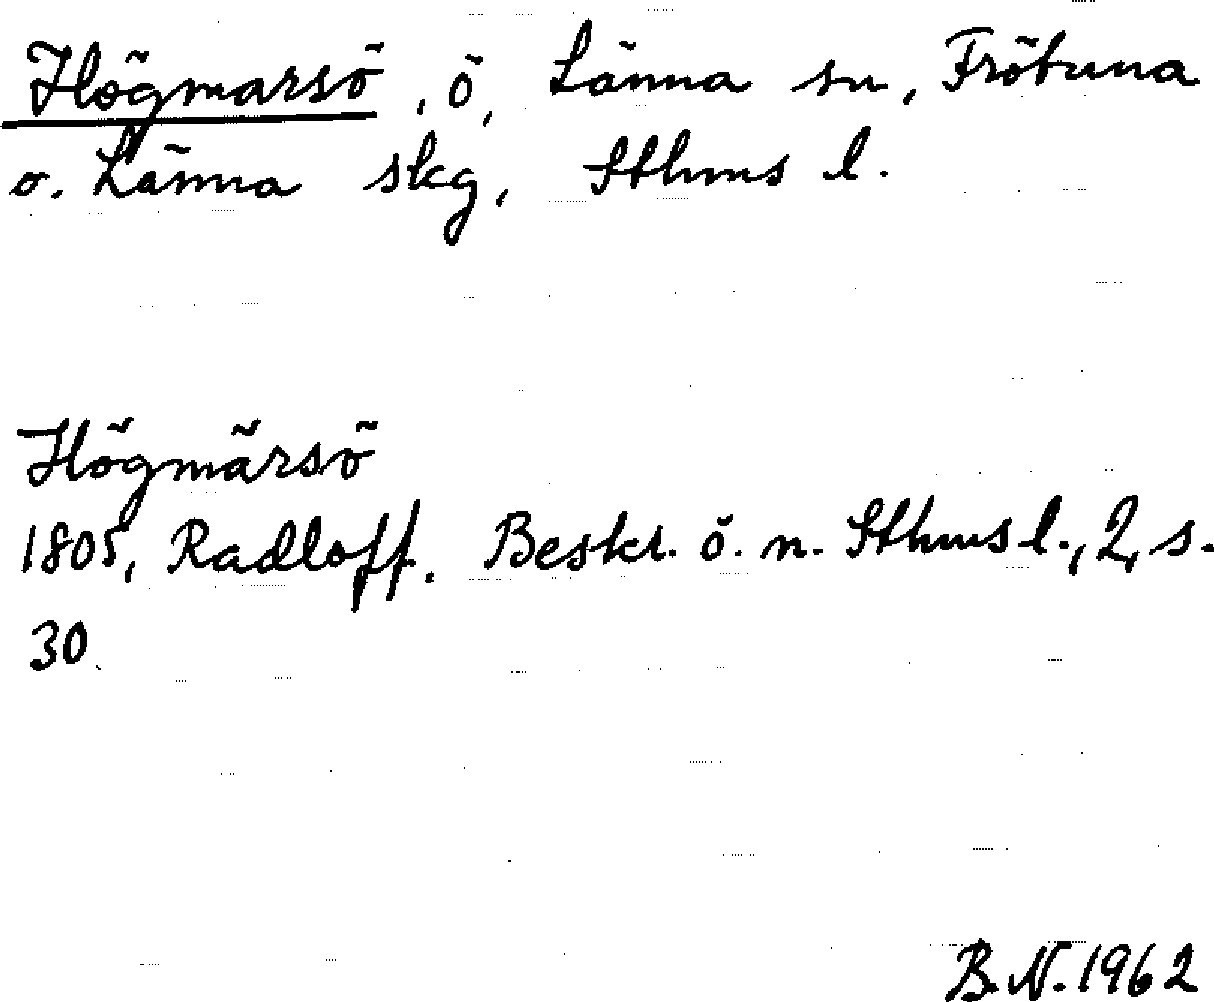 Högmarsö, ö, Länna sn, Frötuna
o. Länna skg, Sthms l.
Högmärsö
1805, Radloff. Beskr. ö. n. Sthms l., 2, s.
30.
B.N. 1962